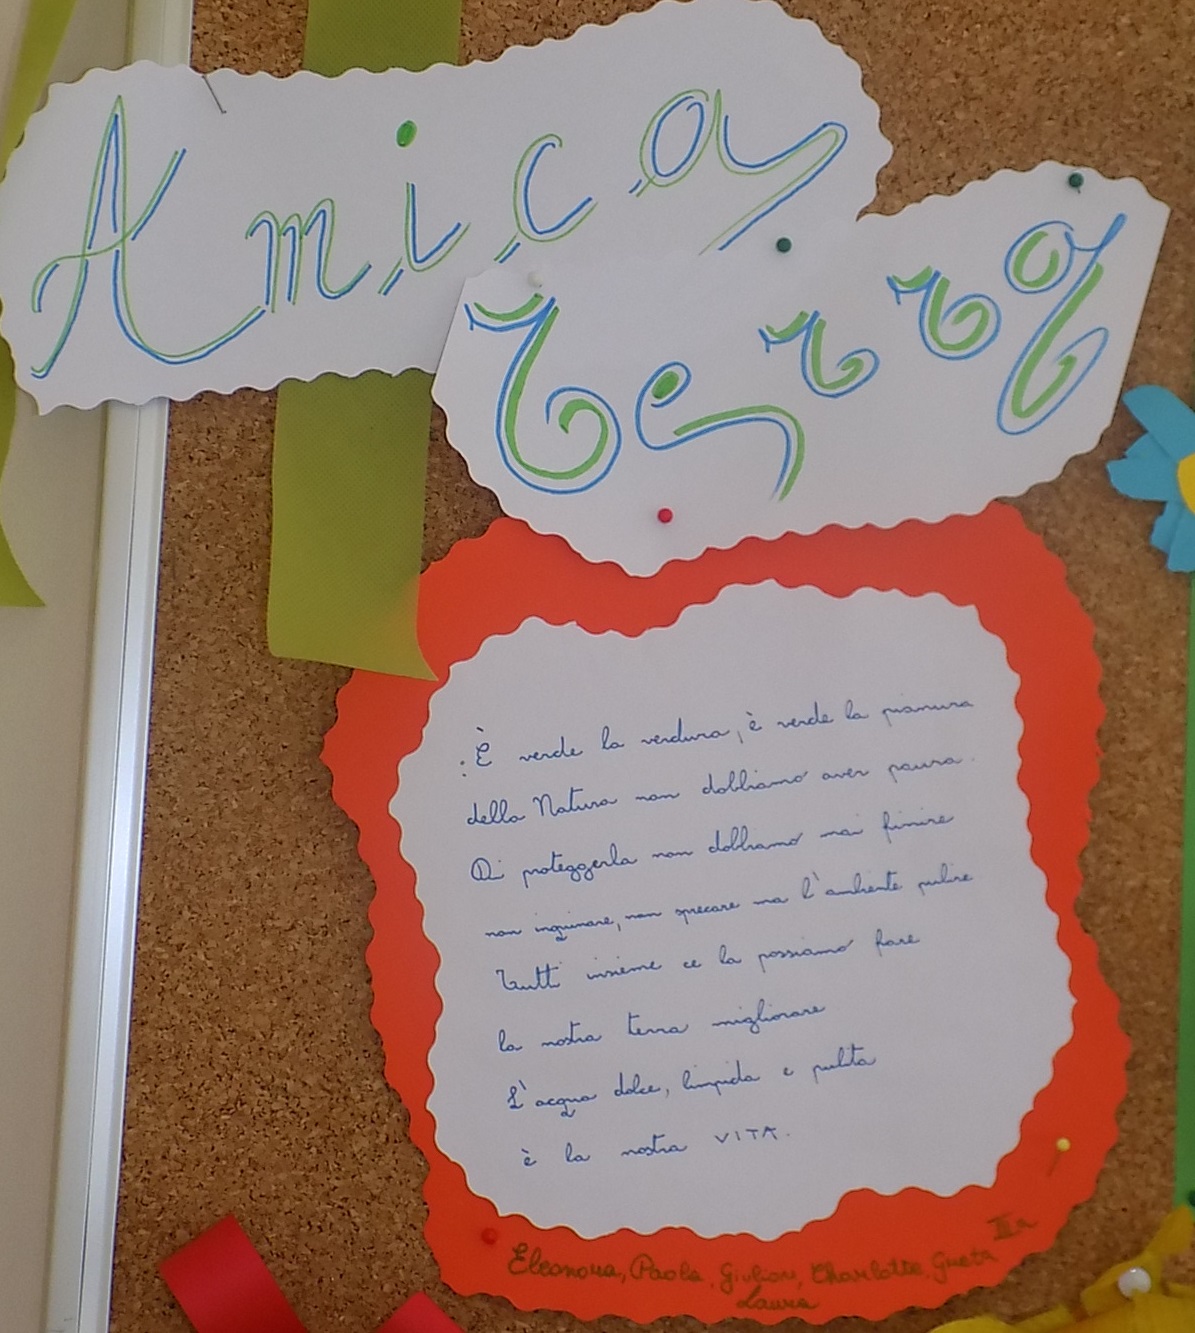 Amica
Terra
È verde la verdura, è verde la pianura
della Natura non dobbiamo aver paura.
Di proteggerla non dobbiamo mai finire
non inquinare, non sprecare ma l'ambiente pulire
Tutti insieme ce la possiamo fare
la nostra terra migliorare
L'acqua dolce, limpida e pulita
è la nostra VITA.
Eleonora, Paola, Charlotte, Greta
Laura